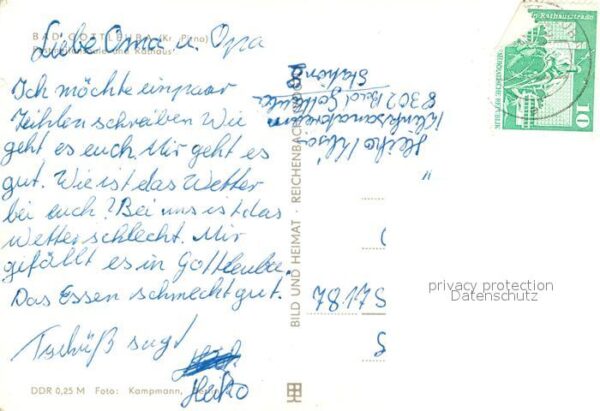 BAD GOTTLEUBA (Kr. Pirna)
Liebe Oma u. Opa
Ich möchte ein paar
Zeihlen schreiben Wie
geht es euch. Mir geht es
gut. Wie ist das Wetter
bei euch? Bei uns ist das
Wetter schlecht. Mir
gefällt es in Gottleuba.
Das Essen schmeckt gut.
Tschüß sagt
Heiko
DDR 0,25 M Foto: Kampmann,
BILD UND HEIMAT · REICHENBACH
Heiko
Kliniksanatorium
8302 Bad Gottleuba
Station 9
10
privacy protection
Datenschutz